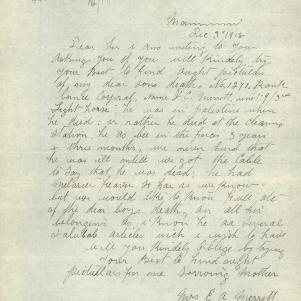 Dec 3rd 1918
Dear Sir i am writing to you
asking you if you will kindely try
your best to find ought pictulars
of my dear sons death. No. 1271. Frank
Lance Corpral, name F. C. Merrett unit 9/3rd
Light horse; he was in palestine when
he Died; or rather he died at the Clearing
Station, he as bee in the forces 3 years
& three months, we never heard that
he was ill untill we got the Cable
to say that he was dead; he had
Malarier feaver so far as we know—
but we would like to know full all
of the dear boys death, an all his
belongens as i know he as several
valuable articles wich i wish to have
will you kindely oblige by trying
your Best to find ought
pictullars for one Sorrowing Mother
Mrs E A Merrett